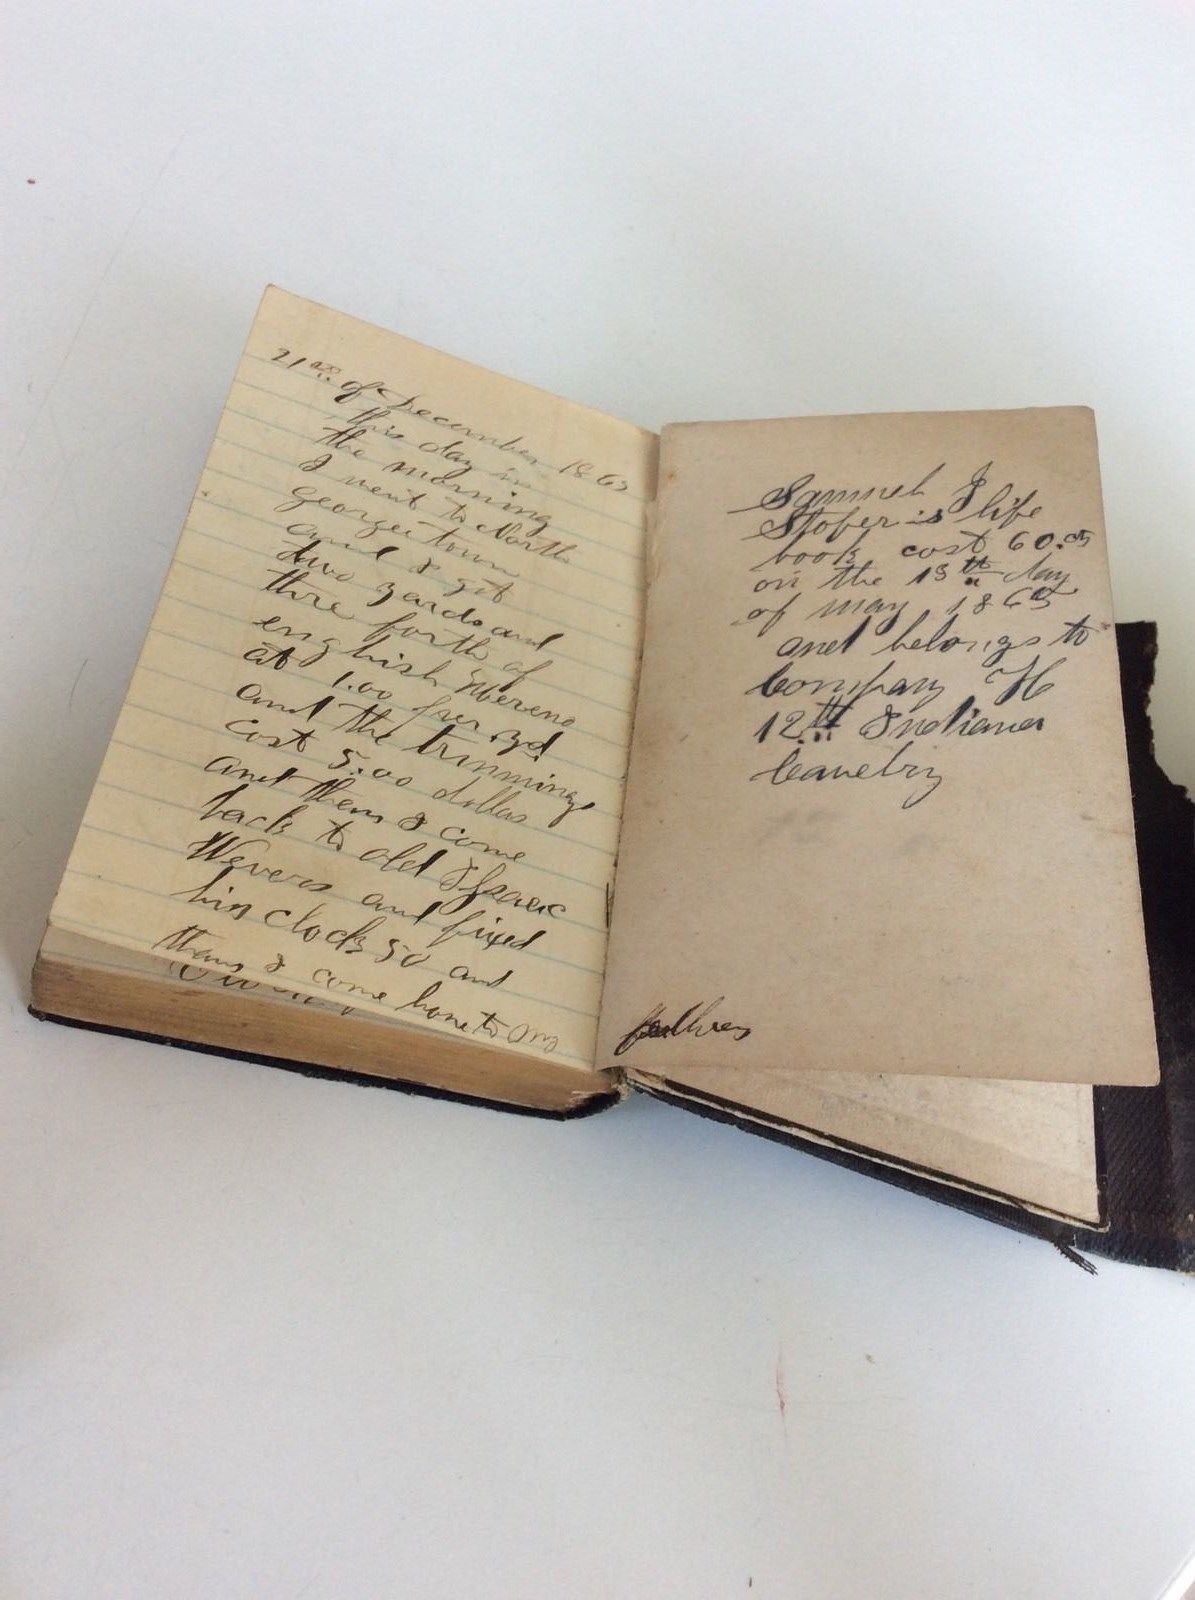 21st of December 1865
this day in
the morning
I went to North
georgetown
and I got
two yards and
three forth of
english Mereno
at 1.00 per yd
and the trimmings
cost 5.00 dollars
and then I come
back to old Isaac
Wevers and fixed
his clock 50 and
then I come home to my
Samuel J
Stober is life
book cost 60.cts
on the 13th day
of may 1865
and belongs to
Company H
12th Indiana
Cavelry